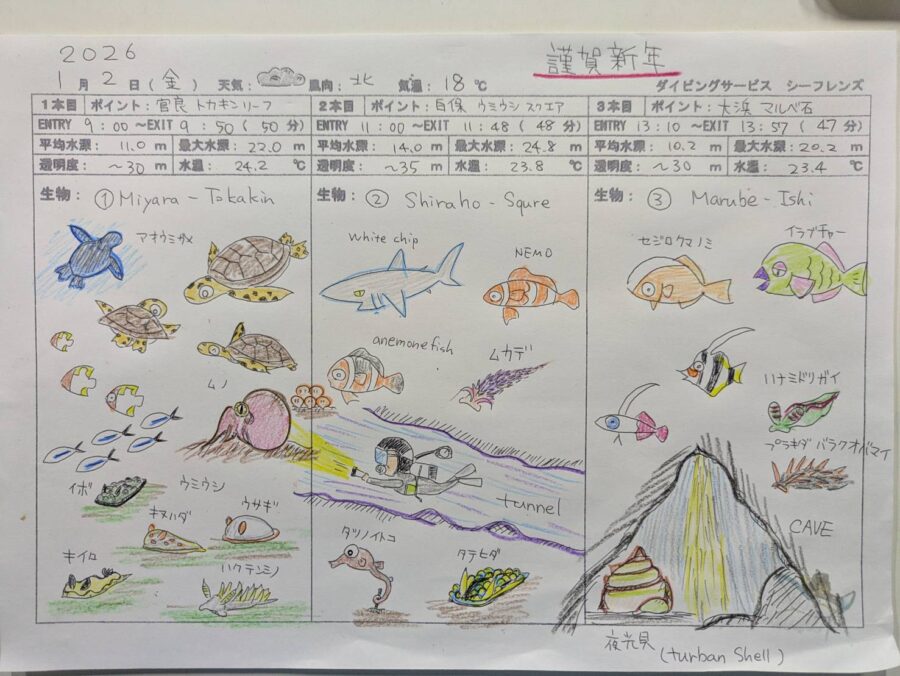 2026
謹賀新年
1月2日(金) 天気: 風向: 北 気温: 18℃ ダイビングサービス シーフレンズ
1本目 ポイント: 宮良 トカキンリーフ
ENTRY 9:00 ~EXIT 9:50 (50分)
平均水深: 11.0 m 最大水深: 22.0 m
透明度: ~30 m 水温: 24.2 ℃
2本目 ポイント: 白保 ウミウシ スクエア
ENTRY 11:00 ~EXIT 11:48 (48分)
平均水深: 14.0 m 最大水深: 24.8 m
透明度: ~35 m 水温: 23.8 ℃
3本目 ポイント: 大浜 マルベ石
ENTRY 13:10 ~EXIT 13:57 (47分)
平均水深: 10.2 m 最大水深: 20.2 m
透明度: ~30 m 水温: 23.4 ℃
生物: ① Miyara - Tokakin
アオウミガメ
ムノ
イボ
ウミウシ
キヌハダ
ウサギ
キイロ
ハクテンミノ
生物: ② Shiraho - Squre
White chip
NEMO
anemonefish
ムカデ
tunnel
タツノイトコ
タテヒダ
生物: ③ Marube - Ishi
セジロクマノミ
イラブチャー
ハナミドリガイ
プラキダ バラクオバマイ
CAVE
夜光貝
(turban Shell)